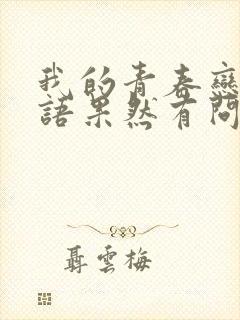 我的青春戀
語果然有問
聶雲梅